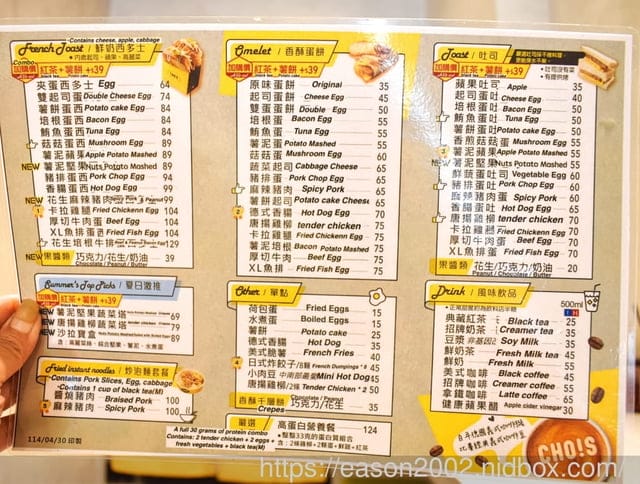 French Toast / 鮮奶西多士
Contains cheese, apple, cabbage
Combo
加購價 紅茶+薯餅 +$39
夾蛋西多士 Egg 64
雙起司蛋西 Double Cheese Egg 74
薯餅蛋西 Potato cake Egg 84
培根蛋西 Bacon Egg 84
鮪魚蛋西 Tuna Egg 84
菇菇蛋西 Mushroom Egg 89
薯泥蘋果 Apple Potato Mashed 89
NEW 薯泥堅果 Nuts Potato Mashed 89
豬排蛋西 Pork Chop Egg 94
香腸蛋西 Hot Dog Egg 99
NEW 花生麻辣豬肉 99
卡拉雞腿 Fried Chickenn Egg 104
厚切牛肉 Beef Egg 104
XL魚排蛋西 Fried Fish Egg 104
花生培根牛排 129
NEW 果醬類 巧克力/花生/奶油 39
Chocolate / Peanut / Butter
Summer's Top Picks / 夏日激推
加購價 紅茶+薯餅 +$39
NEW 薯泥堅果蔬菜塔 69
NEW 唐揚雞柳蔬菜塔 79
NEW 沙拉寶盒 89
Fried instant noodles / 炒泡麵套餐
Contains Pork Slices, Egg, cabbage
Contains 1 cup of black tea(M)
醬燒豬肉 Braised Pork 100
麻辣豬肉 Spicy Pork 100
114/04/30 印製
Omelet / 香酥蛋餅
加購價 紅茶+薯餅 +$39
原味蛋餅 Original 35
起司蛋餅 Cheese Egg 45
雙蛋蛋餅 Double Egg 50
培根蛋 Bacon Egg 55
鮪魚蛋 Tuna Egg 55
薯泥蛋 Potato Mashed 55
菇菇蛋 Mushroom Egg 60
蔬菜起司 Cabbage Cheese 65
豬排蛋 Pork Chop Egg 65
麻辣豬肉 Spicy Pork 65
薯餅起司 Potato cake Cheese 65
德式香腸 Hot Dog 70
唐揚雞柳 tender chicken 75
卡拉雞腿 Fried Chickenn Egg 75
薯泥培根 Bacon Potato Mashed 75
厚切牛肉 Beef Egg 75
XL魚排 Fried Fish Egg 75
Other / 單點
荷包蛋 Fried Eggs 15
水煮蛋 Boiled Eggs 15
薯餅 Potato cake 25
德式香腸 Hot Dog 35
美式脆薯 French Fries 40
日式炸餃子/8顆 French Dumplings * 8 45
小肉豆 Mini Hot Dog 45
唐揚雞柳/2條 Tender Chicken * 2 50
香酥千層餅 巧克力/花生 35
Chocolate / Peanut
Crepes
嚴選 高蛋白營養餐 124
A full 30 grams of protein combo
Contains: 2 tender chicken + 2 eggs +
fresh vegetables + black tea(M)
*整點33克的蛋白質組合
含：2條雞柳+2顆蛋+鮮蔬+紅茶
Toast / 吐司
加購價 紅茶+薯餅 +$39
蘋果吐司 Apple 35
起司蛋吐 Cheese Egg 40
培根蛋吐 Bacon Egg 50
鮪魚蛋吐 Tuna Egg 50
薯餅蛋吐 Potato cake Egg 50
香煎菇菇 Mushroom Egg 55
薯泥蘋果 Apple Potato Mashed 55
NEW 薯泥堅果 Nuts Potato Mashed 55
鮮蔬蛋吐 Vegetable Egg 60
豬排蛋吐 Pork Chop Egg 60
麻辣豬肉蛋 Spicy Pork Egg 60
香腸蛋吐 Hot Dog Egg 65
唐揚雞柳 tender chicken 70
卡拉雞腿 Fried Chickenn Egg 70
厚切牛肉 Beef Egg 70
XL魚排蛋 Fried Fish Egg 70
果醬類 花生/巧克力/奶油 20
Chocolate / Peanut / Butter
Drink / 風味飲品
500ml
典藏紅茶 Black tea 25
招牌奶茶 Creamer tea 35
豆漿 非基因 Soy Milk 35
鮮奶茶 Fresh Milk tea 45
鮮奶 Fresh Milk 45
美式咖啡 Black coffee 45
招牌咖啡 Creamer coffee 55
拿鐵咖啡 Latte coffee 65
健康蘋果醋 Apple cider, vinegar 30
CHO!S
https://eason2002.nidbox.com/